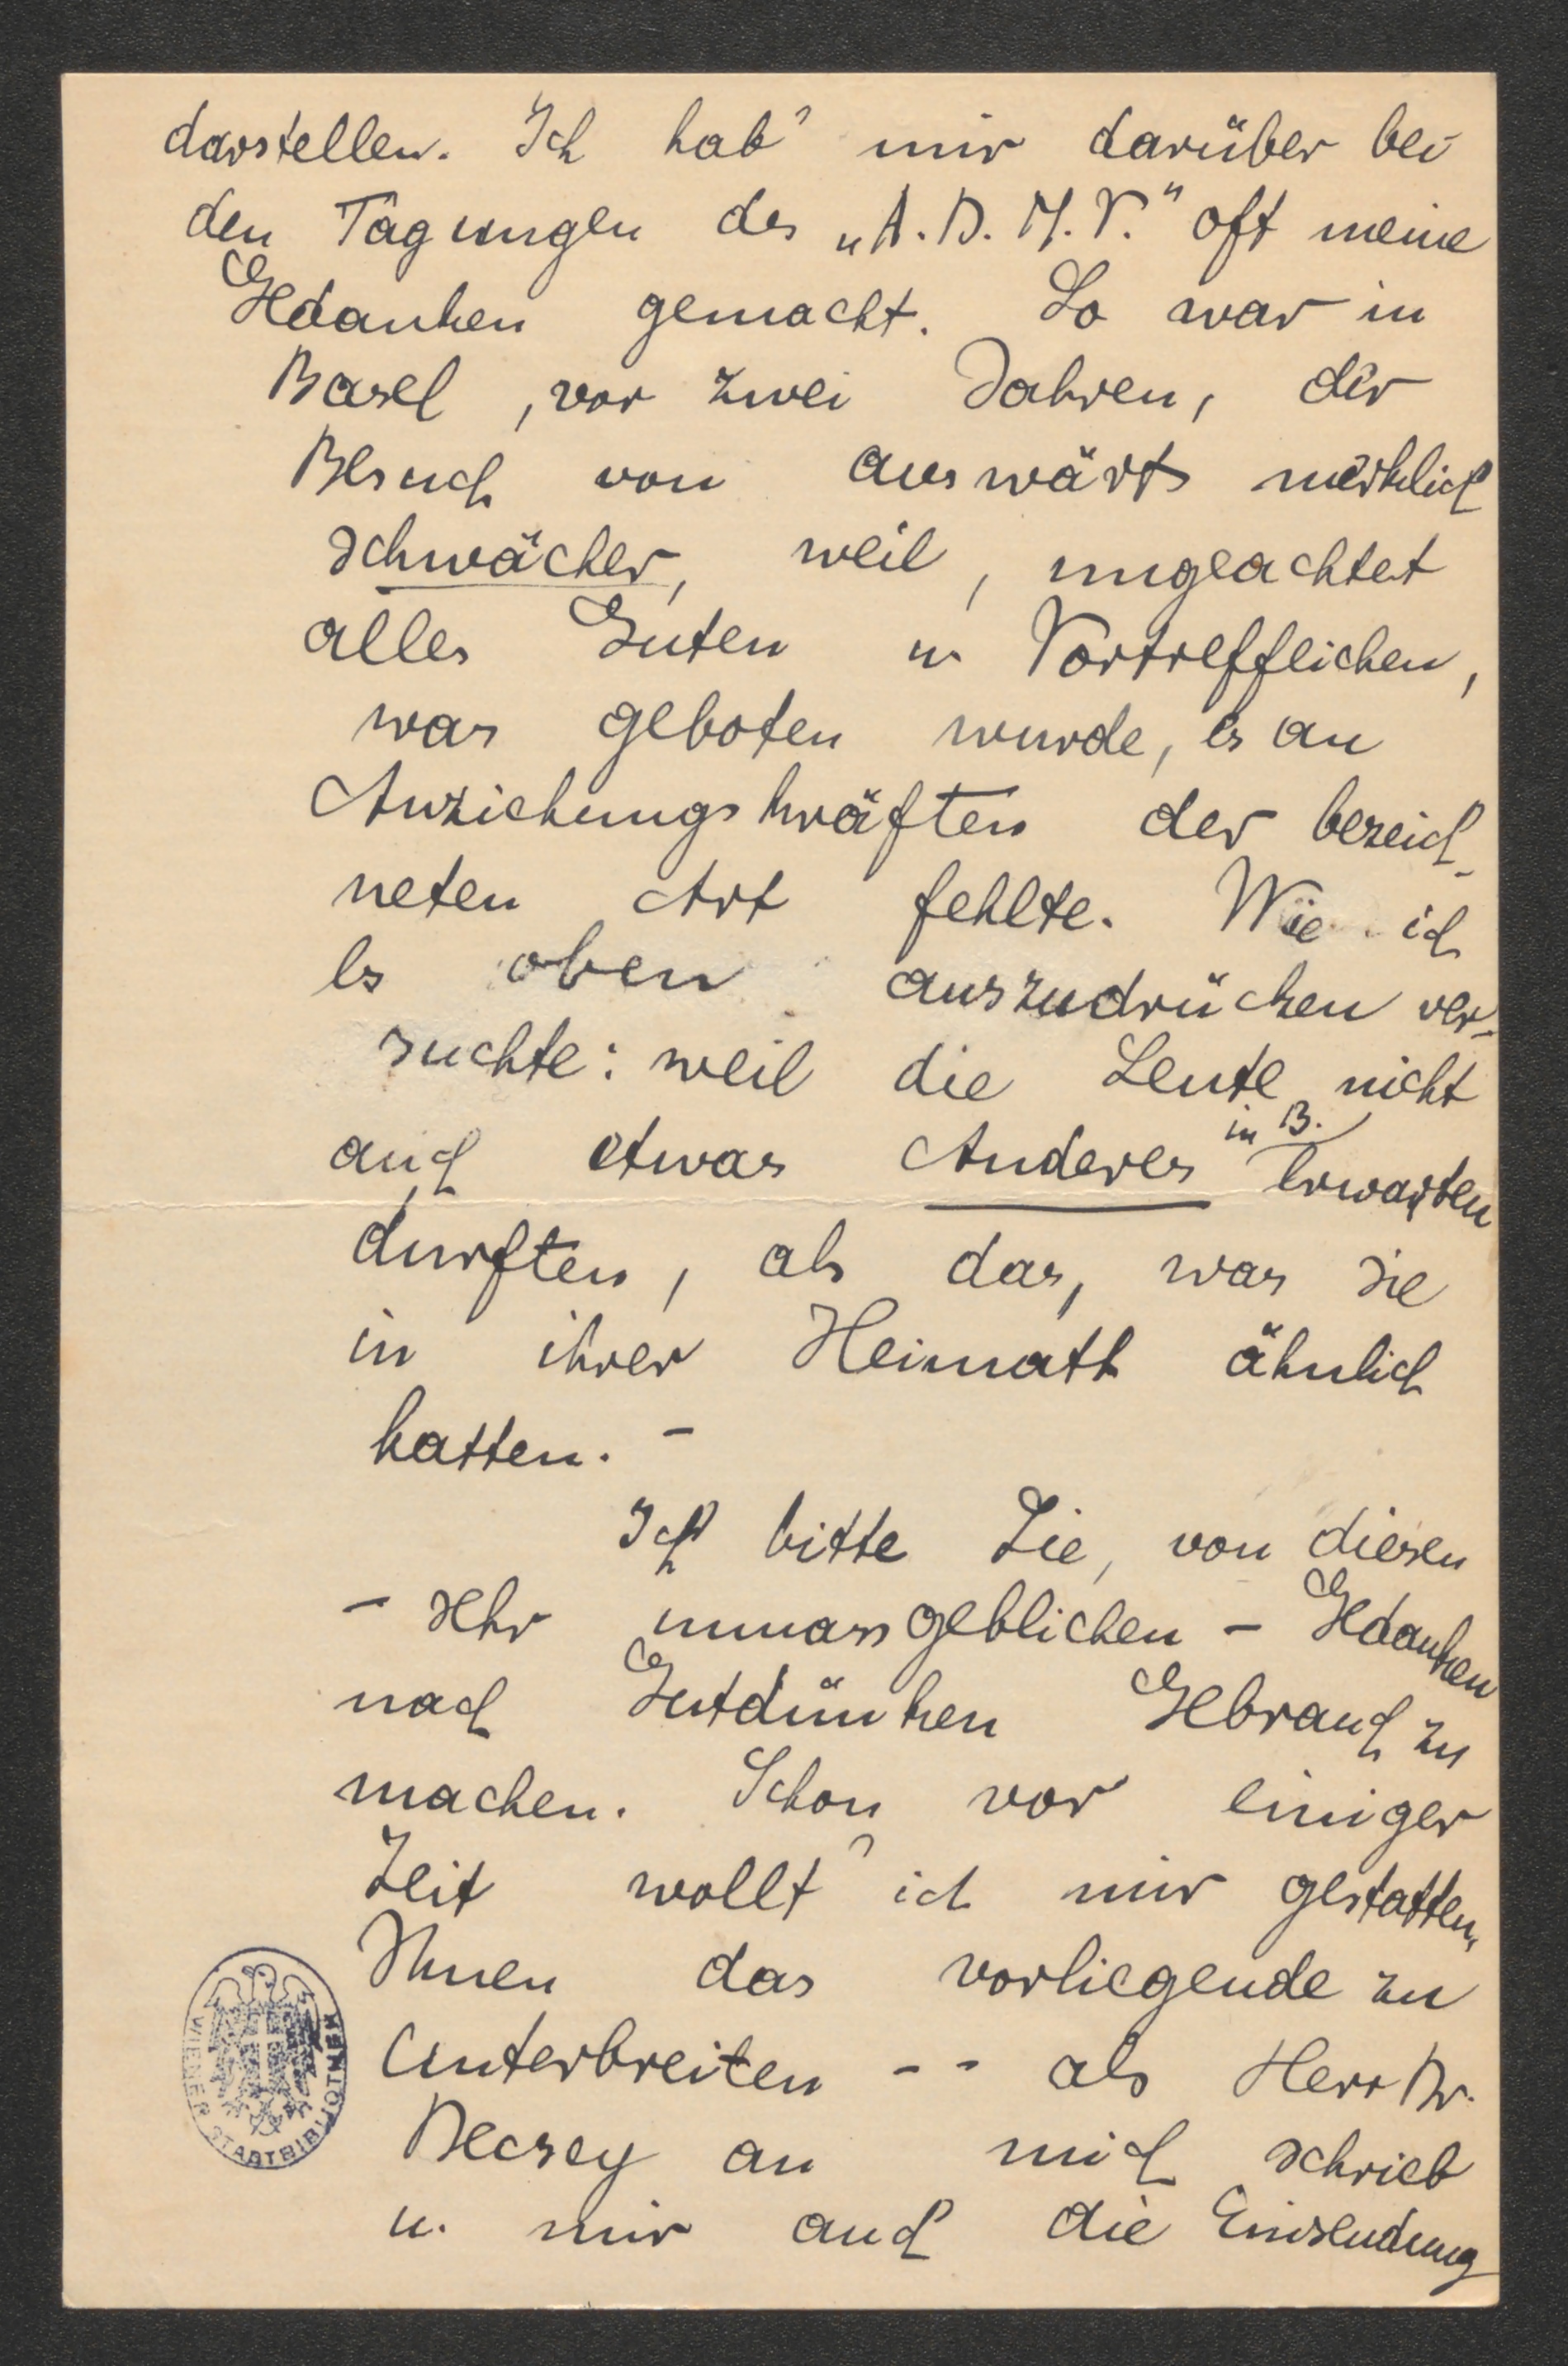 darstellen. Ich hab' mir darüber bei
den Tagungen des „A. D. M. V." oft meine
Gedanken gemacht. So war in
Basel, vor zwei Jahren, der
Besuch von auswärts merklich
schwächer, weil, ungeachtet
alles Guten u Vortrefflichen,
was geboten wurde, es an
Anziehungskräften der bezeich-
neten Art fehlte. Wie ich
es oben auszudrücken ver-
suchte: weil die Leute nicht
auch etwas Anderes in B. erwarten
durften, als das, was sie
in ihrer Heimath ähnlich
hatten. -
Ich bitte Sie, von diesen
- sehr unmassgeblichen - Gedanken
nach Gutdünken Gebrauch zu
machen. Schon vor einiger
Zeit wollt' ich mir gestatten,
Ihnen das vorliegende zu
unterbreiten - - als Herr Dr.
Decsey an mich schrieb
u. mir auch die Einsendung
WIENER STADTBIBLIOTHEK